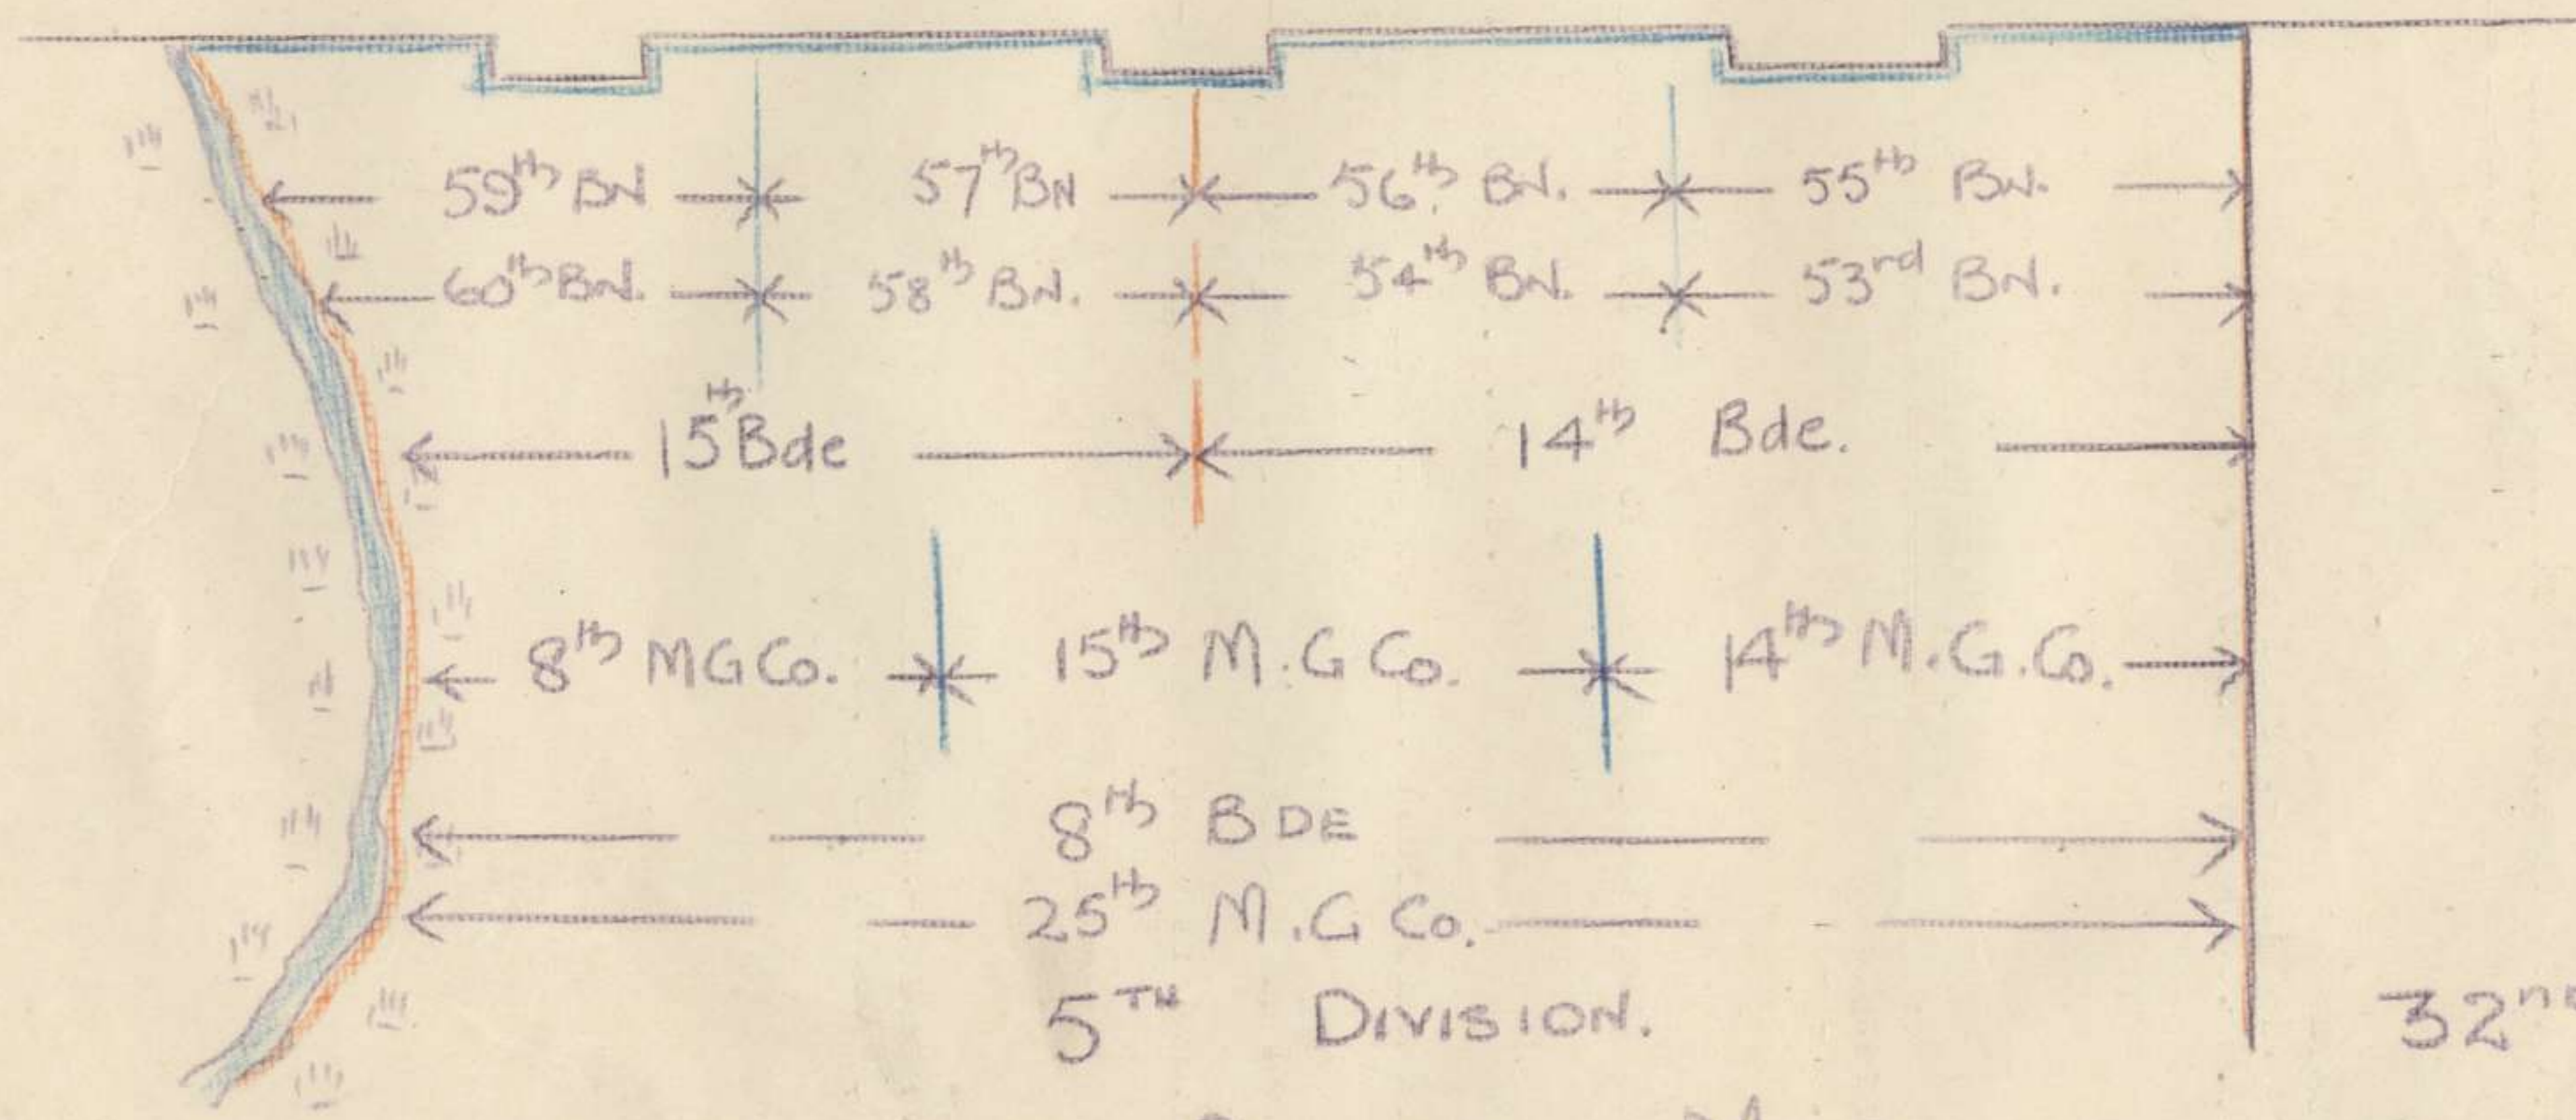 59th BN 57th BN 56th BN. 55th BN.
60th BN. 58th BN. 54th BN. 53rd BN.
15th Bde 14th Bde.
8th MG Co. 15th M.G Co. 14th M.G.Co.
8th BDE
25th M.G Co.
5TH DIVISION.
32nd